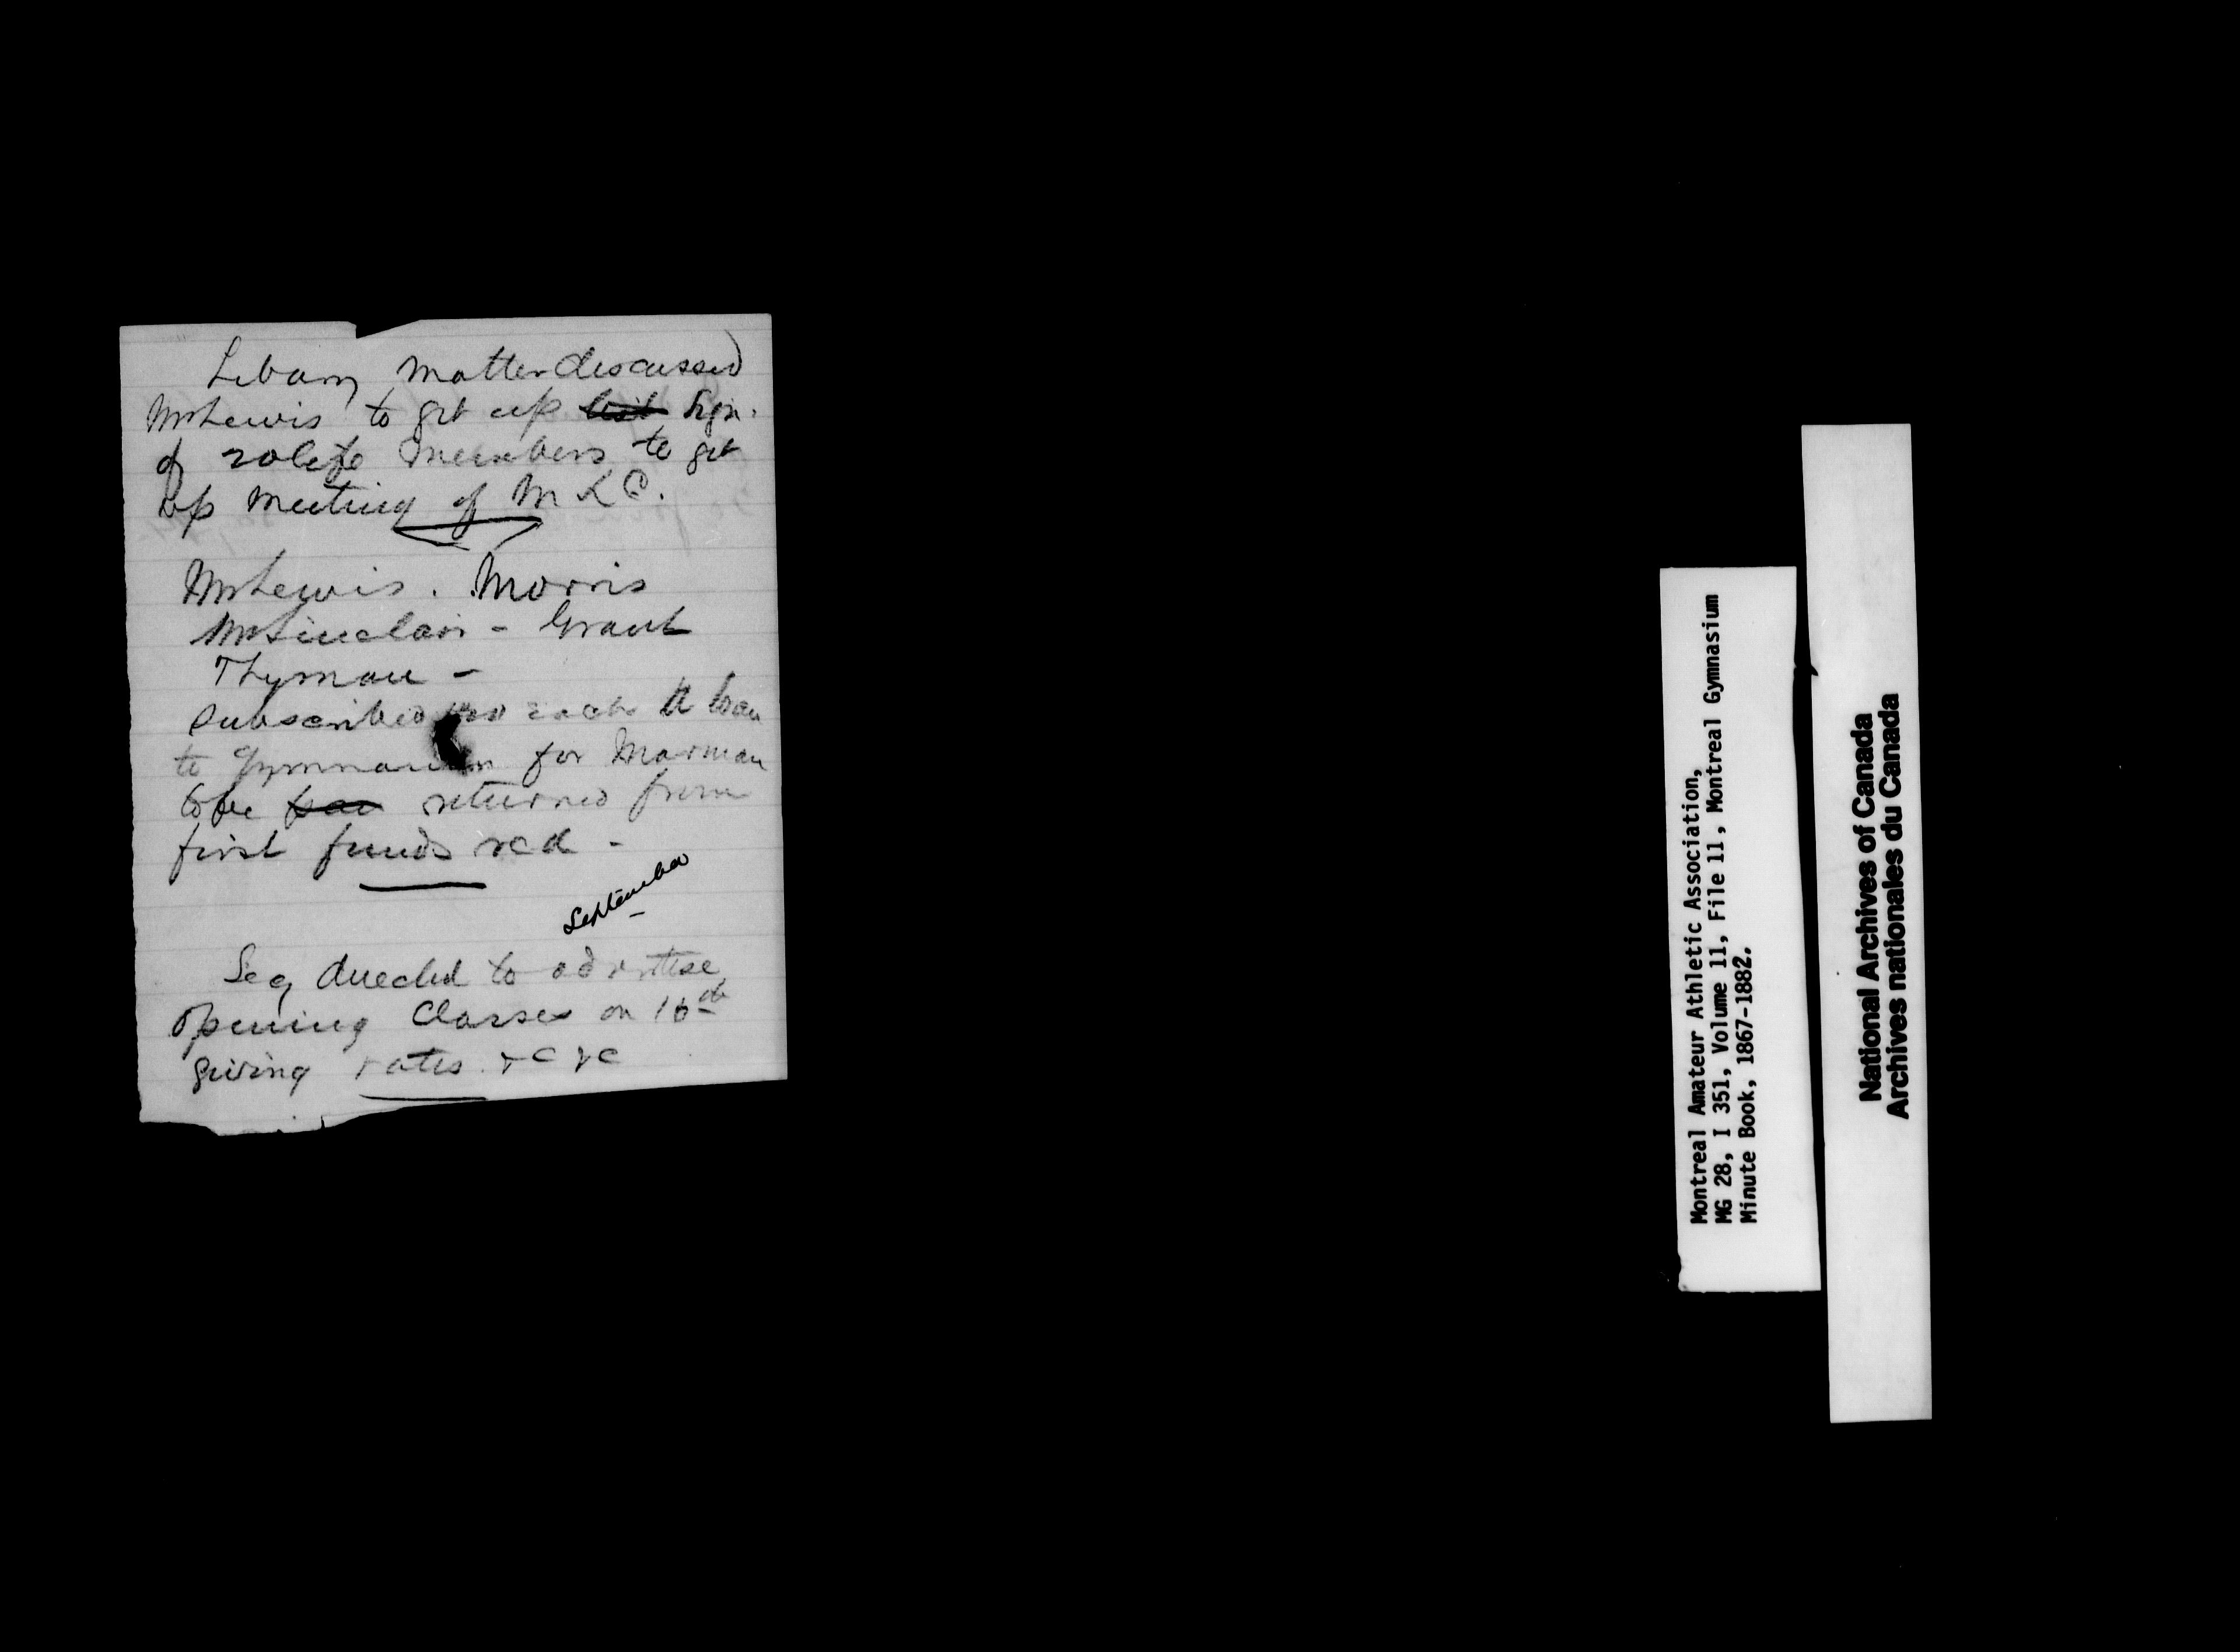 Library matter discussed
Mr Lewis to get up list Sign.
of 20 life members to get
up meeting of M L C.
Mr Lewis . Morris
Mr Sinclair - Grant
Thyman -
subscribed each to loan
to Gymnasium for Marman
to be returned from
first funds recd -
September
Secy directed to advertise
opening Classes on 16th
giving rates &c &c
Montreal Amateur Athletic Association,
MG 28, I 351, Volume 11, File 11, Montreal Gymnasium
Minute Book, 1867-1882.
National Archives of Canada
Archives nationales du Canada